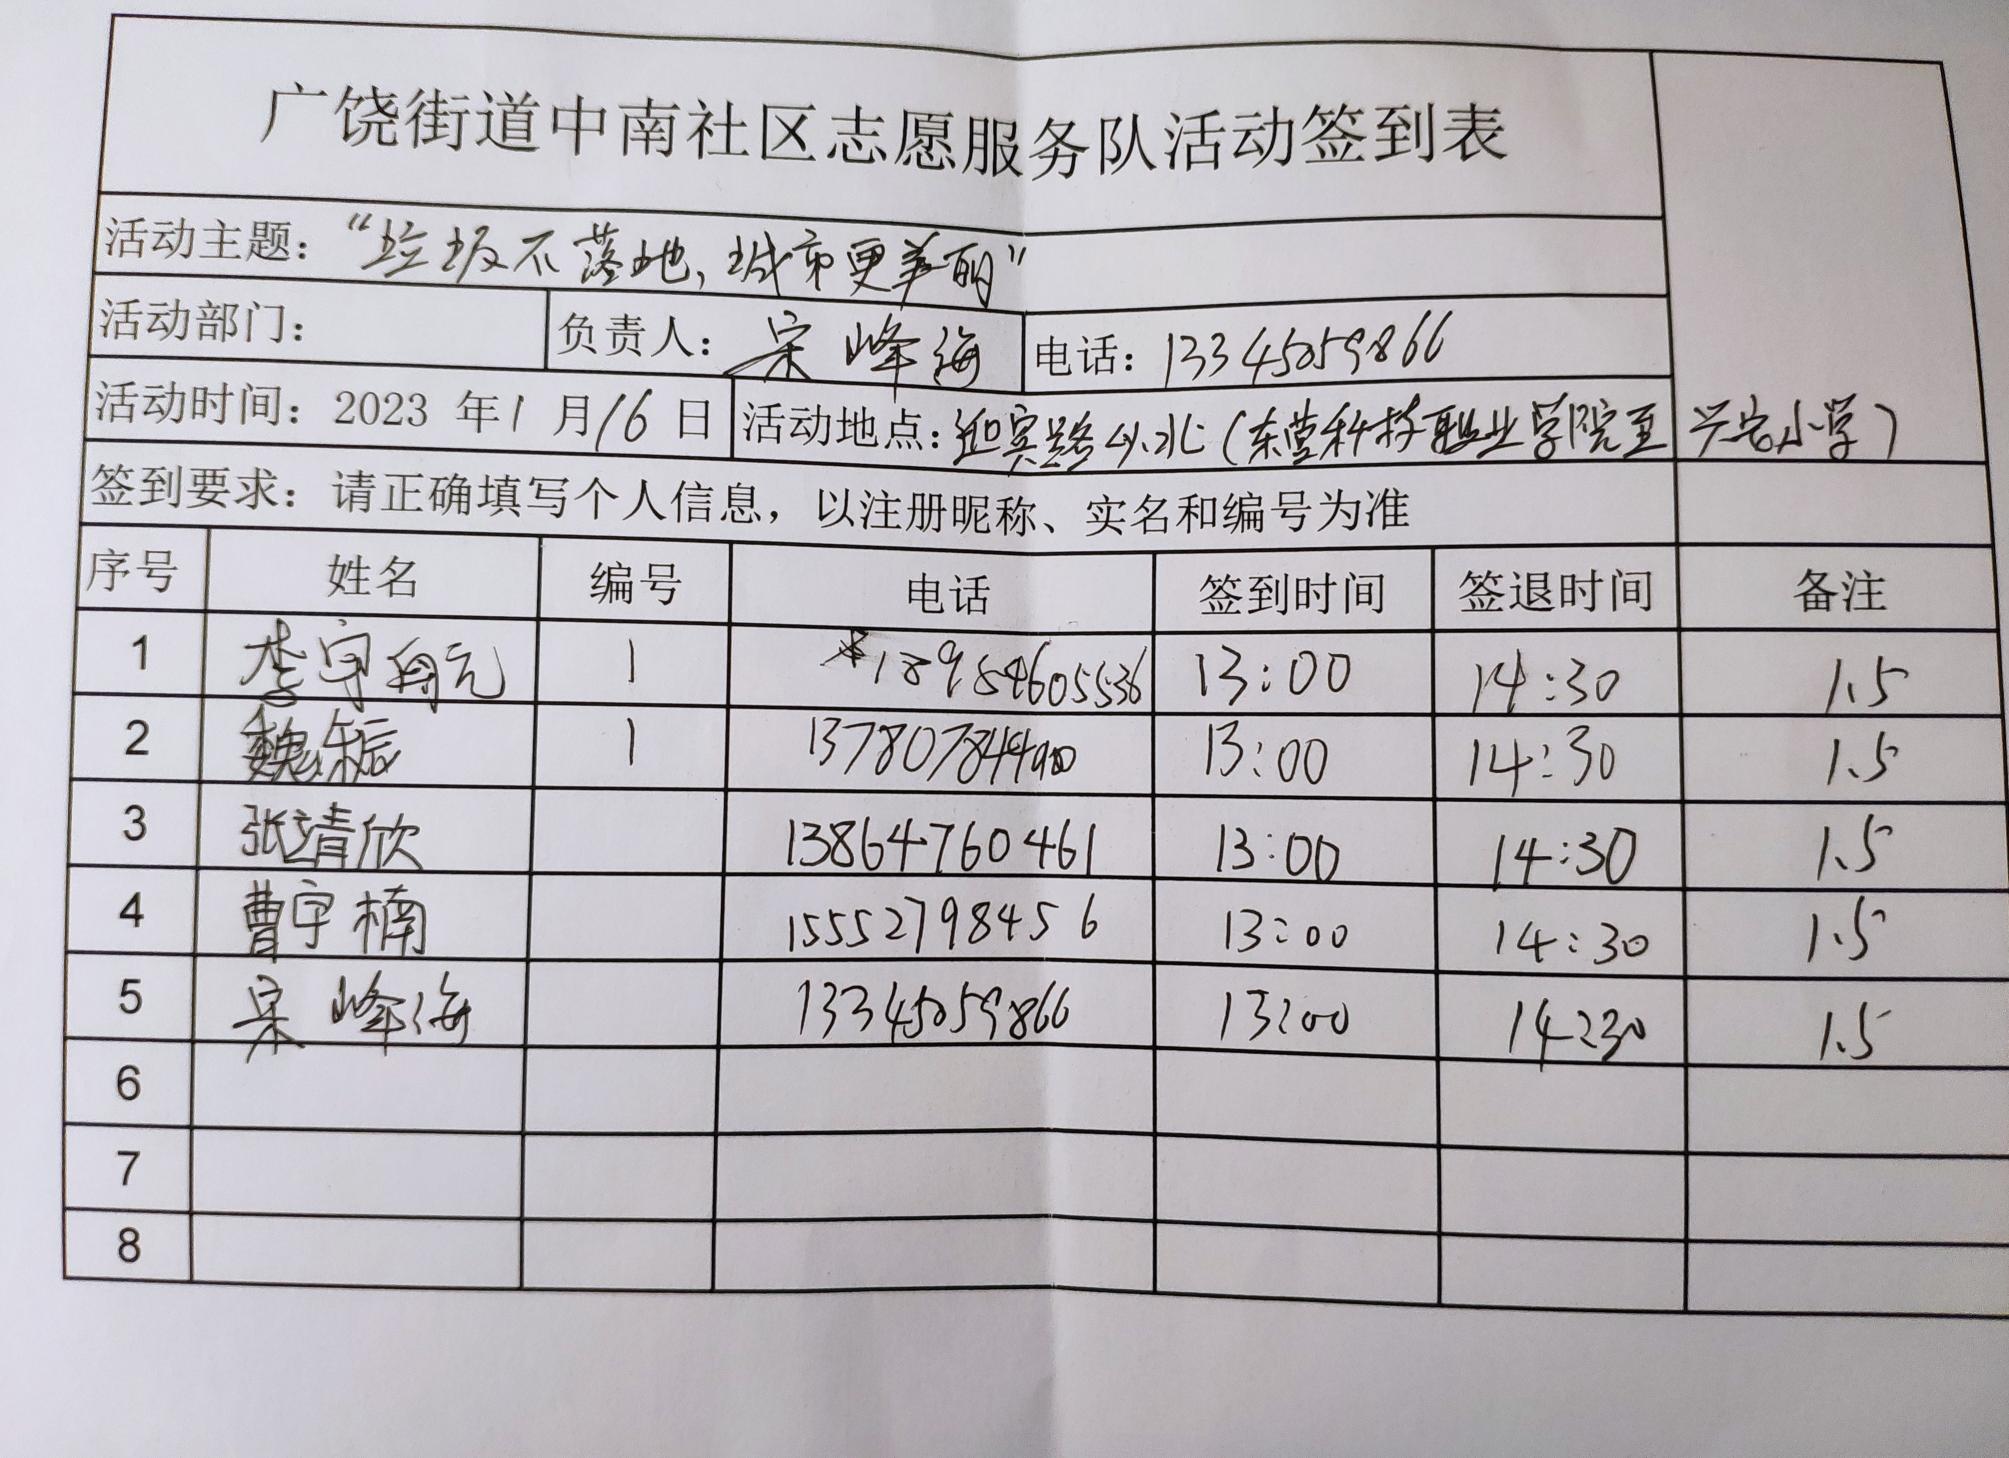 广饶街道中南社区志愿服务队活动签到表
活动主题：“垃圾不落地，城市更美丽”
活动部门： 负责人：宋峰海 电话：13345059866
活动时间：2023 年1月16日 活动地点：迎宾路以北（东营科技职业学院至兴安小学）
签到要求：请正确填写个人信息，以注册昵称、实名和编号为准
序号 姓名 编号 电话 签到时间 签退时间 备注
1 李宇翔元 1 18954605536 13:00 14:30 1.5
2 魏 1 13:00 14:30 1.5
3 张靖欣 13864760461 13:00 14:30 1.5
4 曹宇楠 15552798456 13:00 14:30 1.5
5 宋峰海 13345059866 13:00 14:30 1.5
6
7
8